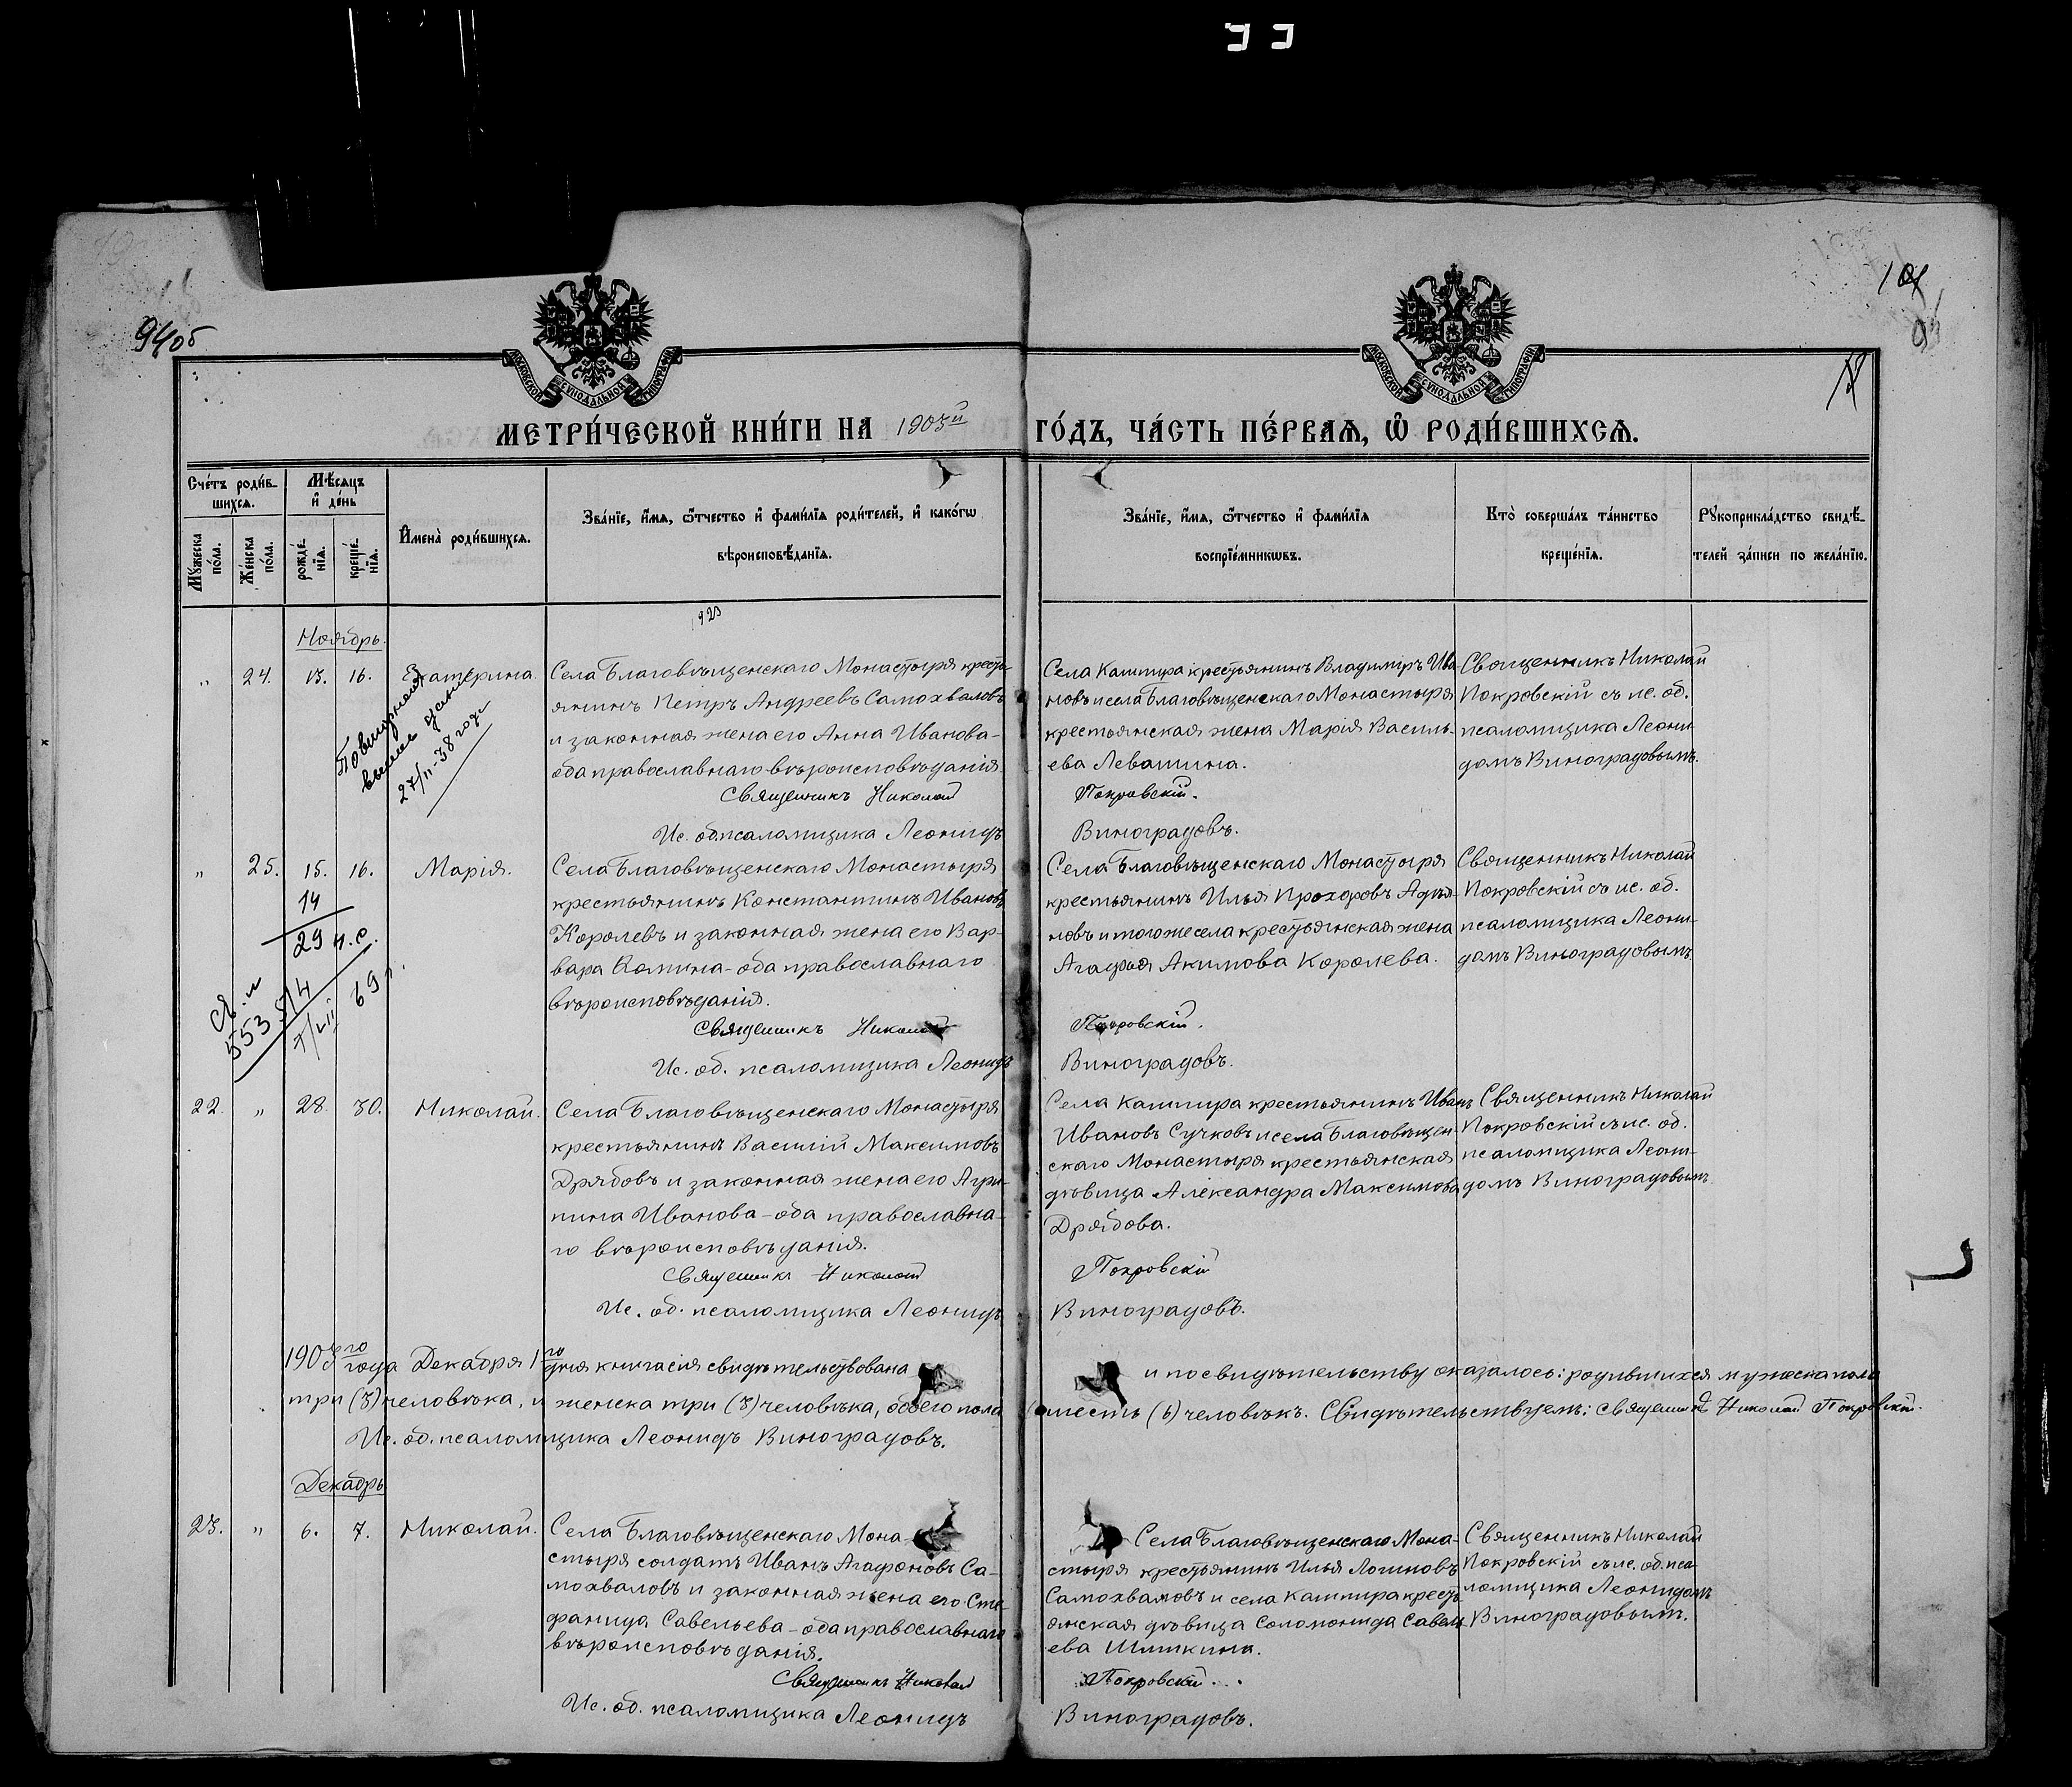 94об
101
95
МОСКОВСКОЙ СѴНОДАЛЬНОЙ ТИПОГРАФІИ
МОСКОВСКОЙ СѴНОДАЛЬНОЙ ТИПОГРАФІИ
МЕТРИ́ЧЕСКОЙ КНИ́ГИ НА 1903й ГО́ДЪ, ЧА́СТЬ ПЕ́РВАѦ, Ѽ РОДИ́ВШИХСѦ.
Сче́тъ роди́в-
шихсѧ.
Мꙋжеска по́ла.
Же́нска по́ла.
Мѣ́сѧцъ
и҆ де́нь
рожде́-
нїѧ.
креще́-
нїѧ.
И҆мена̀ роди́вшихсѧ.
Зва́нїе, и҆́мѧ, ѻ҆́тчество и҆ фами́лїѧ роди́телей, и҆ како́гѡ
вѣроисповѣ́данїѧ.
Зва́нїе, и҆́мѧ, ѻ҆́тчество и҆ фами́лїѧ
воспрїе́мникѡвъ.
Кто̀ соверша́лъ та́инство
креще́нїѧ.
Рꙋкоприкла́дство свидѣ́-
телей за́писи по жела́нїю.
Ноябрь.
" 24. 13. 16. Екатерина.
Села Благовѣщенскаго Монастыря кресть-
янинъ Петръ Андреевъ Самохваловъ
и законная жена его Анна Иванова-
оба православнаго вѣроисповѣданія.
Священникъ Николай
Ис. об. псаломщика Леонидъ
Села Кашпира крестьянинъ Владиміръ Ива-
новъ и села Благовѣщенскаго Монастыря
крестьянская жена Марія Василь-
ева Левашина.
Покровскій.
Виноградовъ.
Священникъ Николай
Покровскій съ ис. об.
псаломщика Леони-
домъ Виноградовымъ.
27/II-38 года
" 25. 15. 16. Марія.
14
29 н.с.
Села Благовѣщенскаго Монастыря
крестьянинъ Константинъ Ивановъ
Королевъ и законная жена его Вар-
вара Фомина - оба православнаго
вѣроисповѣданія.
Священникъ Николай
Ис. об. псаломщика Леонидъ
Села Благовѣщенскаго Монастыря
крестьянинъ Илья Прохоровъ
новъ и того же села крестьянская жена
Агафья Акимова Королева.
Покровскій.
Виноградовъ.
Священникъ Николай
Покровскій съ ис. об.
псаломщика Леони-
домъ Виноградовымъ
22. " 28. 30. Николай.
Села Благовѣщенскаго Монастыря
крестьянинъ Василій Максимовъ
Дрябовъ и законная жена его Агри-
пина Иванова - оба православна-
го вѣроисповѣданія.
Священникъ Николай
Ис. об. псаломщика Леонидъ
Села Кашпира крестьянинъ Иванъ
Ивановъ Сучковъ и села Благовѣщен-
скаго Монастыря крестьянская
дѣвица Александра Максимова
Дрябова.
Покровскій
Виноградовъ.
Священникъ Николай
Покровскій съ ис. об.
псаломщика Леони-
домъ Виноградовымъ
1903го года Декабря 1го дня книга сія свидѣтельствована и по свидѣтельству оказалось: родившихся мужеска пола
три (3) человѣка, и женска три (3) человѣка, обоего пола шесть (6) человѣкъ. Свидѣтельствуемъ: Священникъ Николай Покровскій.
Ис. об. псаломщика Леонидъ Виноградовъ.
Декабрь
23. " 6. 7. Николай.
Села Благовѣщенскаго Мона-
стыря солдатъ Иванъ Агафоновъ Са-
мохваловъ и законная жена его Сте-
фанида Савельева - оба православнаго
вѣроисповѣданія.
Священникъ Николай
Ис. об. псаломщика Леонидъ
Села Благовѣщенскаго Мона-
стыря крестьянинъ Илья Логиновъ
Самохваловъ и села Кашпира кресть-
янская дѣвица Соломонида Савель-
ева Шишкина.
Покровскій
Виноградовъ.
Священникъ Николай
Покровскій съ ис. об. пса-
ломщика Леонидомъ
Виноградовымъ.